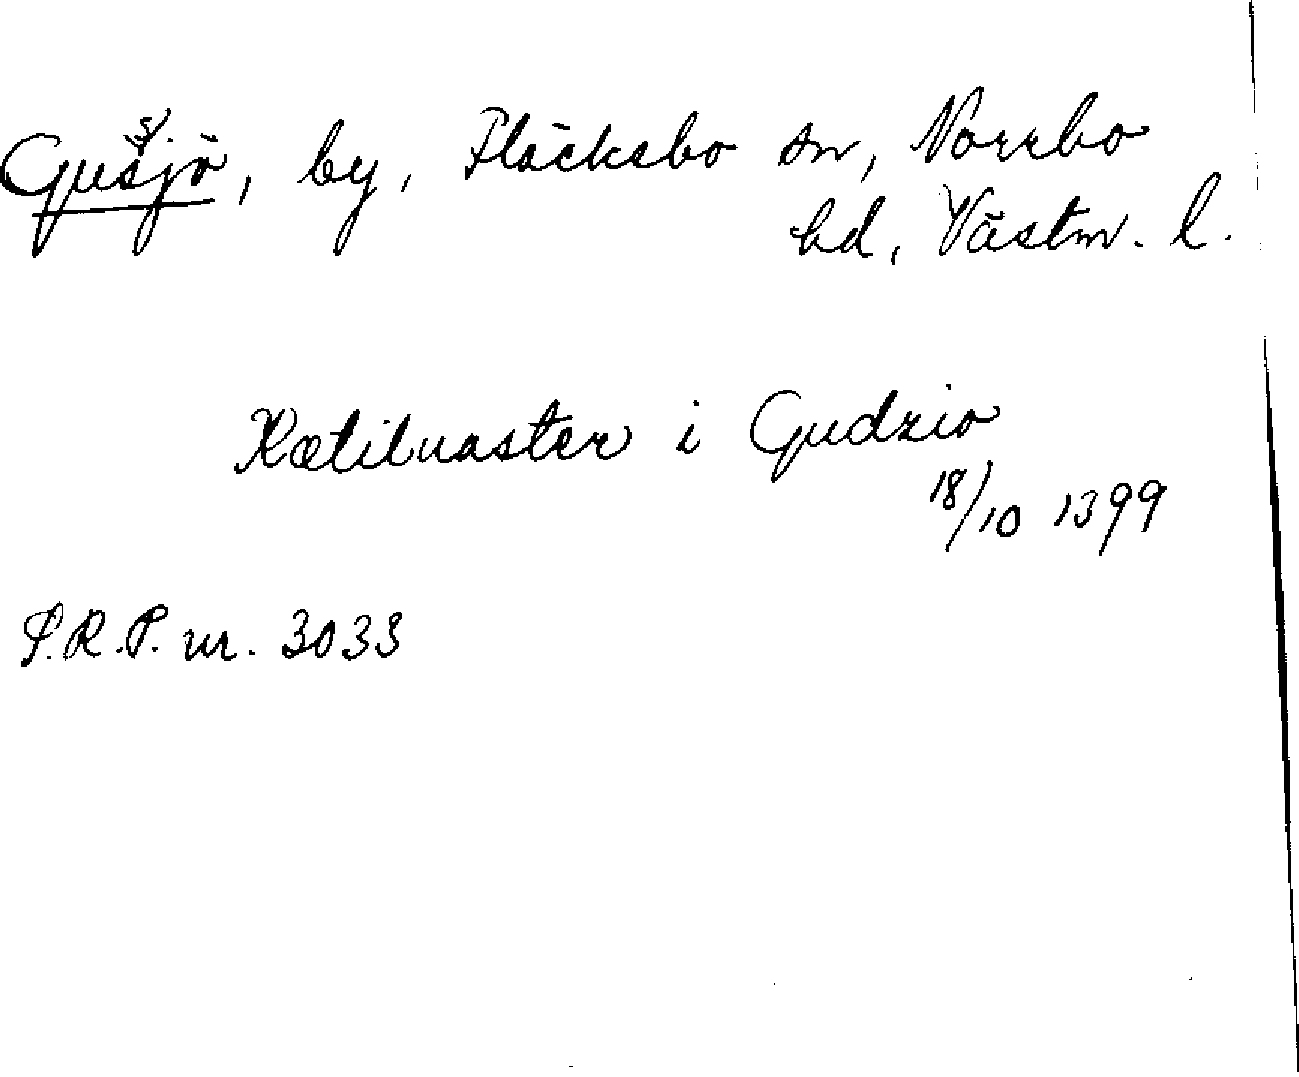 Gussjö, by, Fläcksbo sn, Norrbo
hd, Västm. l.
Kætiluaster i Gudzio
18/10 1399
S.R.P. nr. 3033